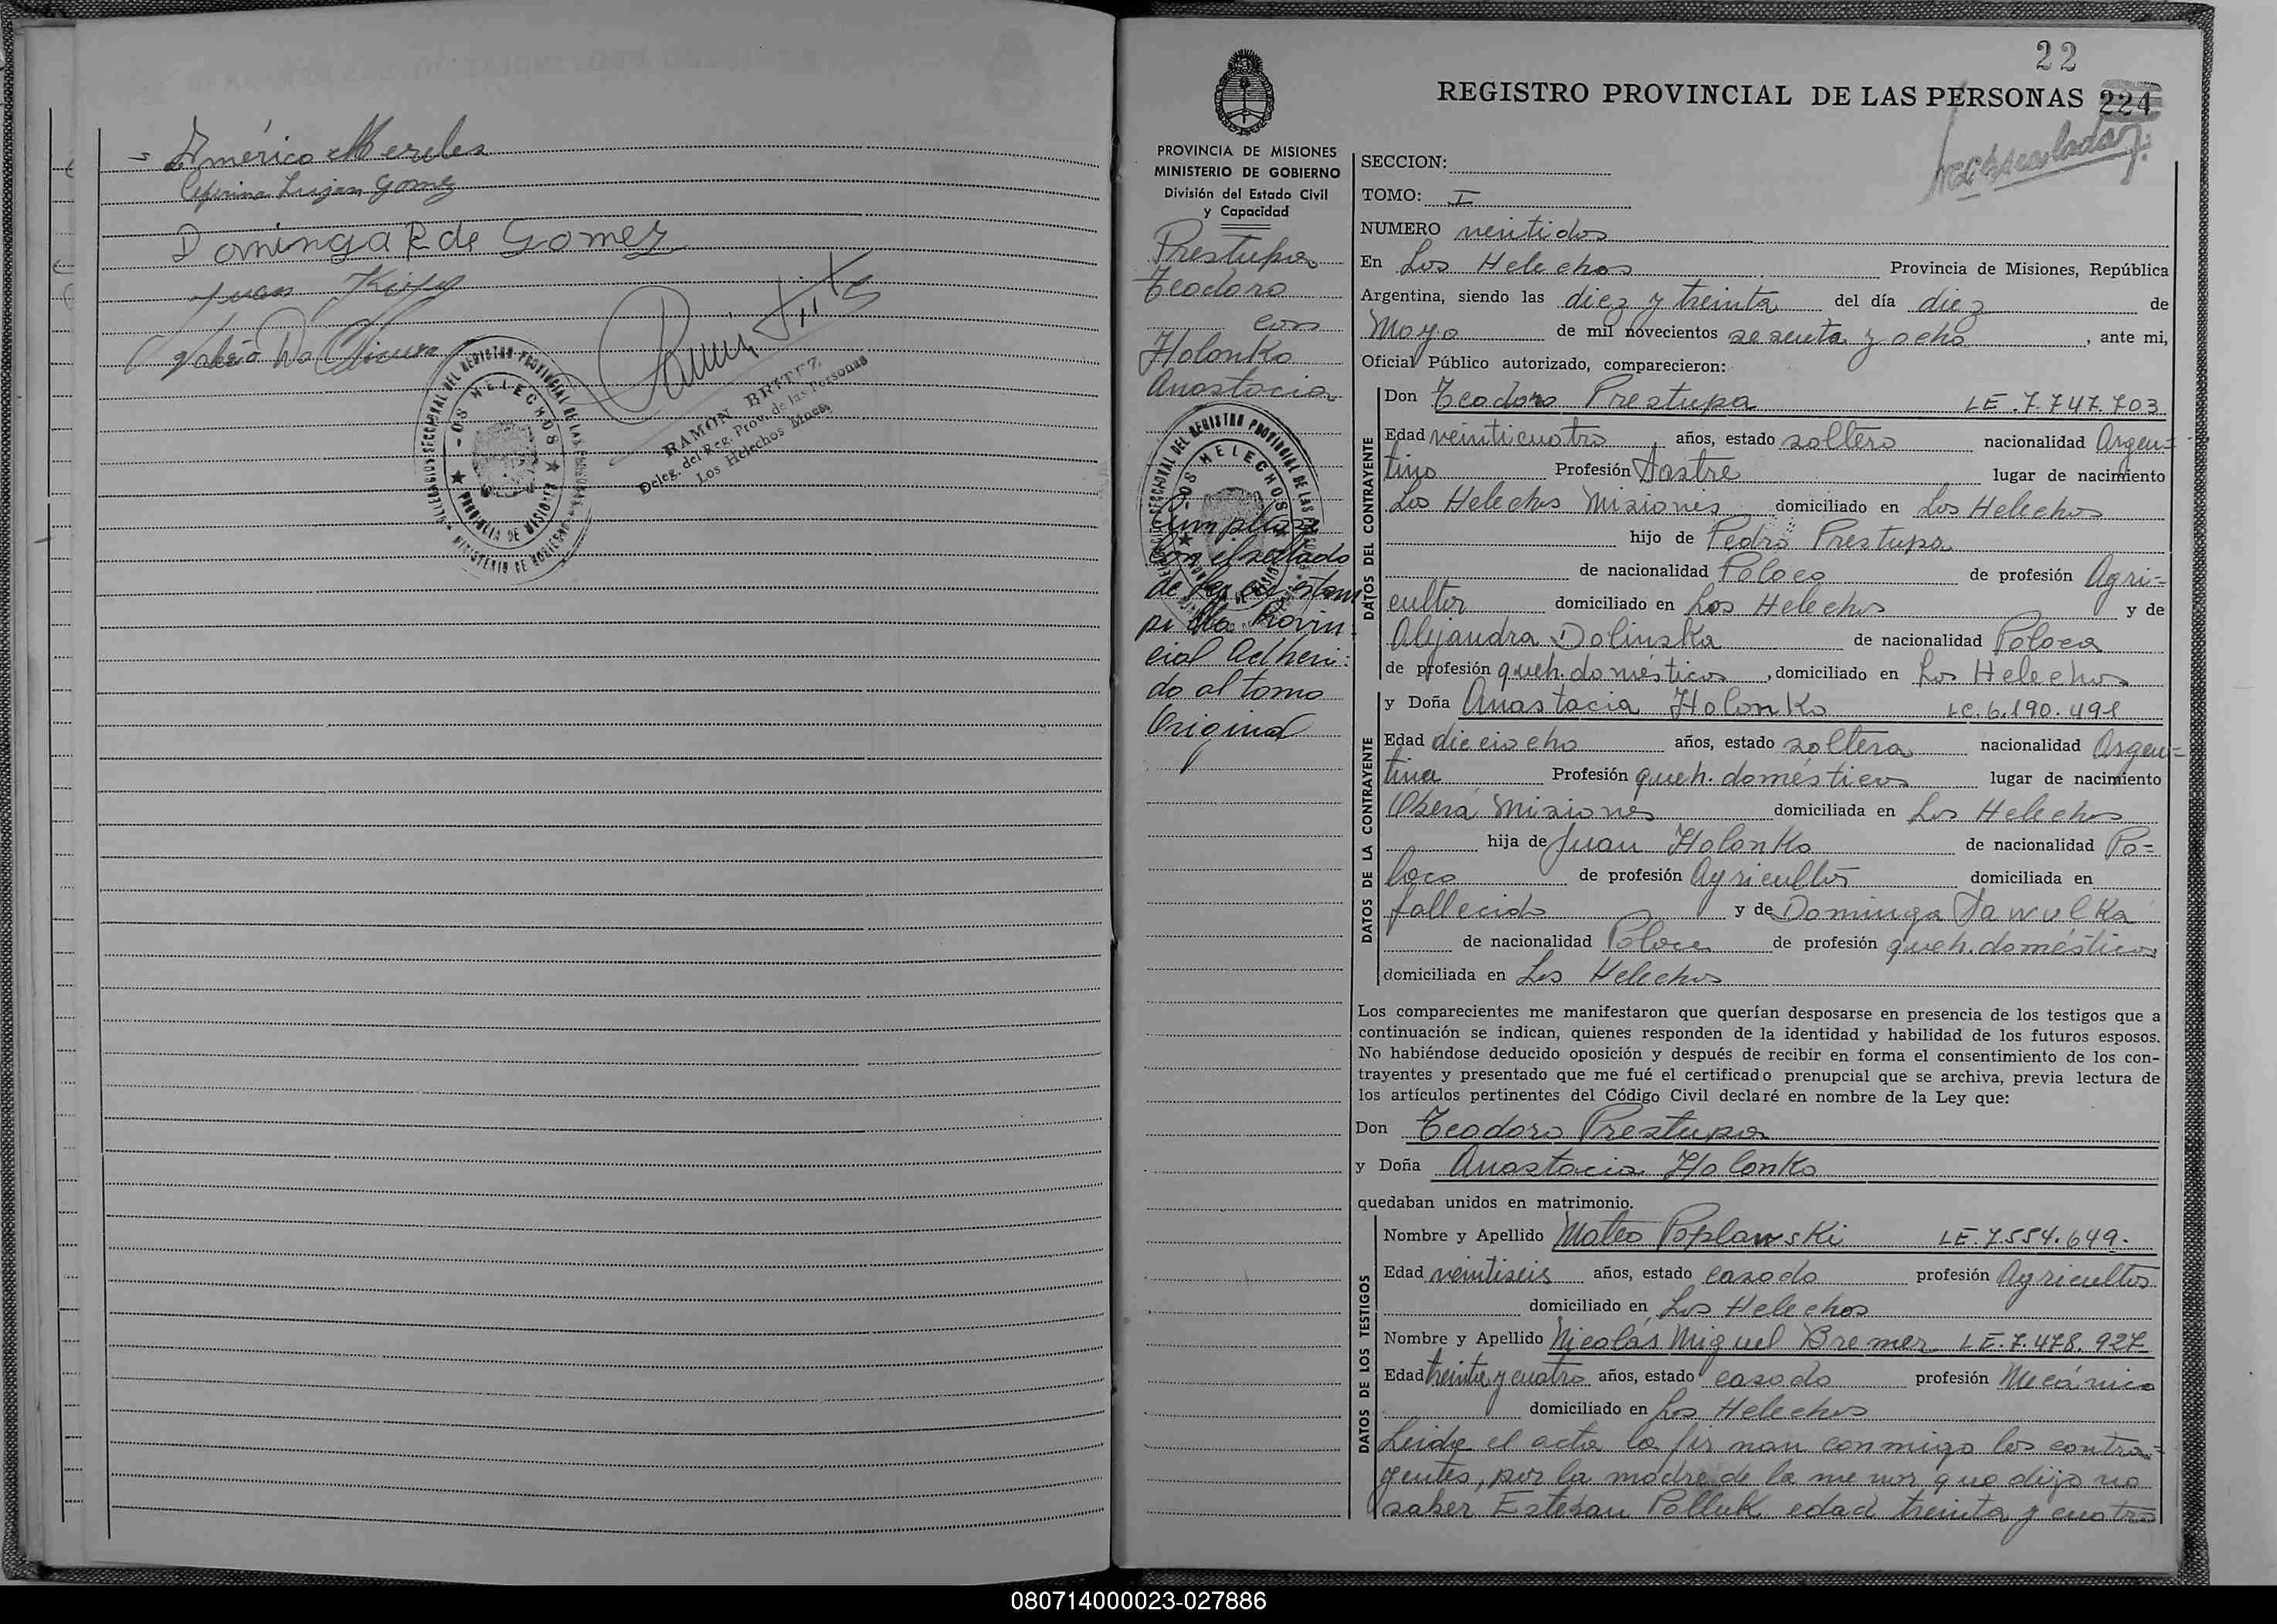 Américo Mereles
Ceferina Lujan Gomez
Dominga R de Gomez
Juan
RAMON BRITEZ
Deleg. del Reg. Prov. de las Personas
Los Helechos Mnes.
DELEGACION SECCIONAL DEL REGISTRO PROVINCIAL DE LAS PERSONAS
LOS HELECHOS
PROVINCIA DE MISIONES
MINISTERIO DE GOBIERNO
22
REGISTRO PROVINCIAL DE LAS PERSONAS 224
PROVINCIA DE MISIONES
MINISTERIO DE GOBIERNO
División del Estado Civil
y Capacidad
Prestupa
Teodoro
con
Holonko
Anastacia
LOS HELECHOS
Cumplase
con el sellado
de Ley en estam
pilla Provin
cial Adheri:
do al tomo
Original
SECCION:
TOMO: I
NUMERO veintidos
En Los Helechos Provincia de Misiones, República
Argentina, siendo las diez y treinta del día diez de
Mayo de mil novecientos sesenta y ocho, ante mi,
Oficial Público autorizado, comparecieron:
DATOS DEL CONTRAYENTE
Don Teodoro Prestupa LE. 7.747.703
Edad veinticuatro, años, estado soltero nacionalidad Argen=
tino Profesión Sastre lugar de nacimiento
Los Helechos Misiones domiciliado en Los Helechos
hijo de Pedro Prestupa
de nacionalidad Polaco de profesión Agri=
cultor domiciliado en Los Helechos y de
Alejandra Dolinska de nacionalidad Polaca
de profesión queh. domésticos, domiciliado en Los Helechos
DATOS DE LA CONTRAYENTE
y Doña Anastacia Holonko LC. 6.190.491
Edad dieciocho años, estado soltera nacionalidad Argen=
tina Profesión queh. domésticos lugar de nacimiento
Oberá Misiones domiciliada en Los Helechos
hija de Juan Holonko de nacionalidad Po=
laco de profesión Agricultor domiciliada en
fallecido y de Dominga Sawulka
de nacionalidad Polaca de profesión queh. domésticos
domiciliada en Los Helechos
Los comparecientes me manifestaron que querían desposarse en presencia de los testigos que a
continuación se indican, quienes responden de la identidad y habilidad de los futuros esposos.
No habiéndose deducido oposición y después de recibir en forma el consentimiento de los con-
trayentes y presentado que me fué el certificado prenupcial que se archiva, previa lectura de
los artículos pertinentes del Código Civil declaré en nombre de la Ley que:
Don Teodoro Prestupa
y Doña Anastacia Holonko
quedaban unidos en matrimonio.
DATOS DE LOS TESTIGOS
Nombre y Apellido Mateo Poplawski LE. 7.554.649.
Edad veintiseis años, estado casado profesión Agricultor
domiciliado en Los Helechos
Nombre y Apellido Nicolás Miguel Bremer LE. 7.478.927
Edad treinta y cuatro años, estado casado profesión Mecánico
domiciliado en Los Helechos
Leida el acta la firman conmigo los contra=
yentes, por la madre de la menor que dijo no
saber Esteban Polluk edad treinta y cuatro
080714000023-027886